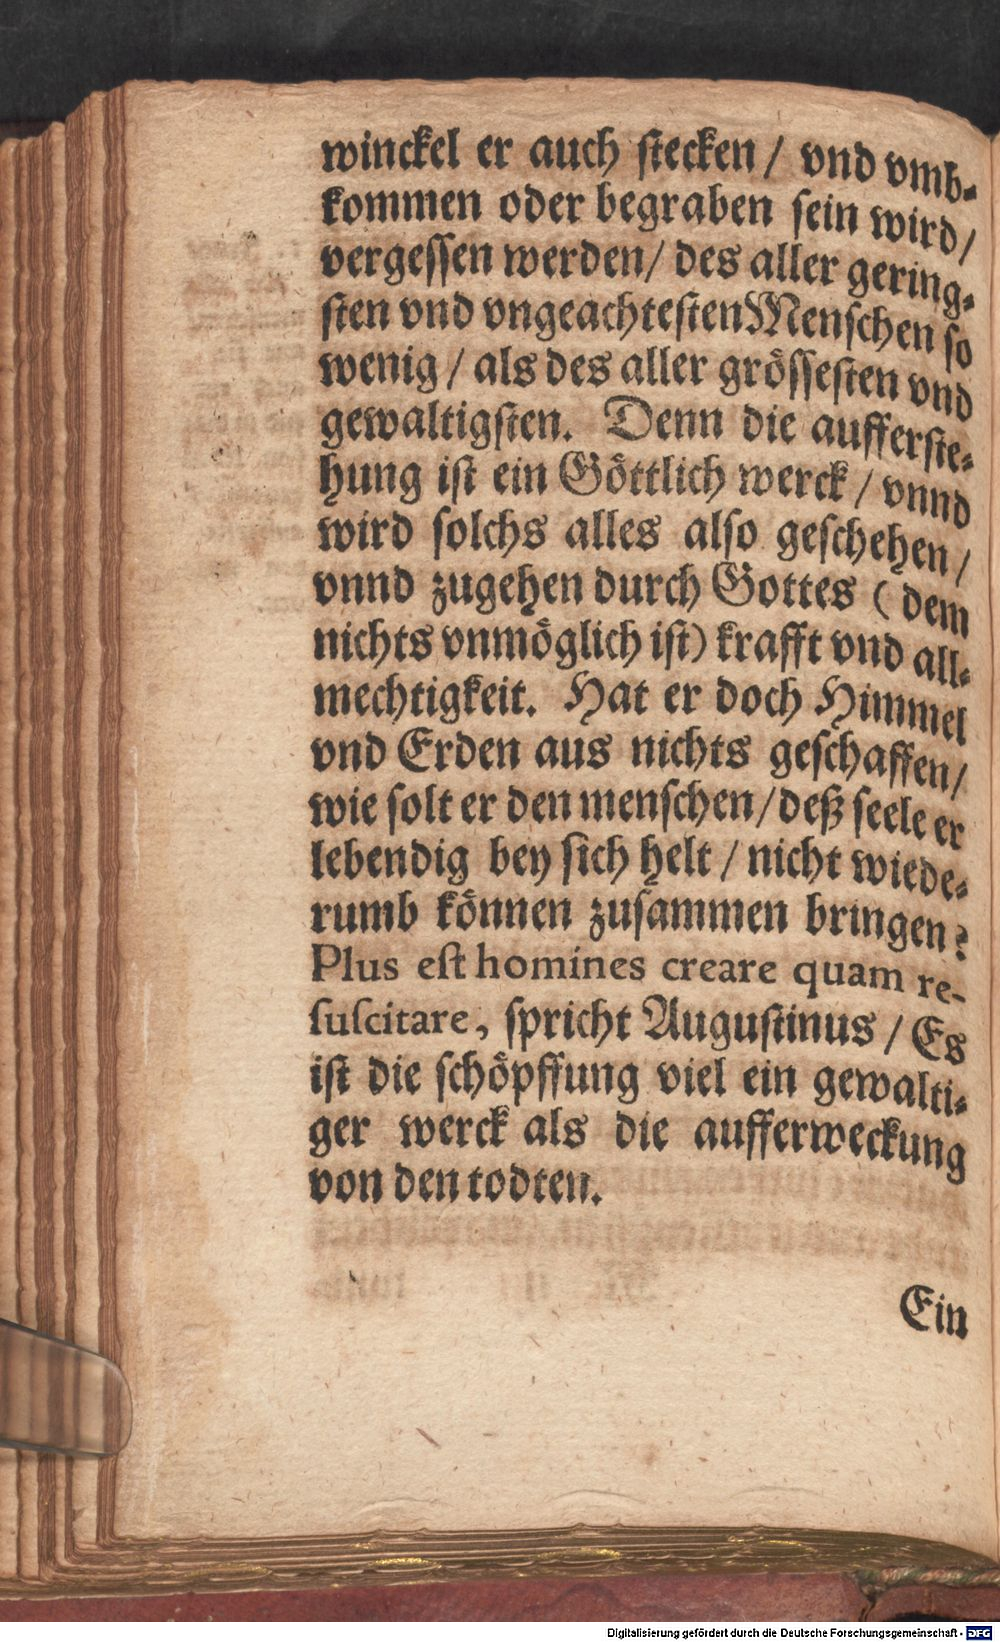 winckel er auch ſtecken / vnd vmb⸗
kommen oder begraben ſein wird /
vergeſſen werden / des aller gering⸗
ſten vnd vngeachteſten Menſchen ſo
wenig / als des aller gröſſeſten vnd
gewaltigſten. Denn die aufferſte⸗
hung iſt ein Göttlich werck / vnnd
wird ſolchs alles alſo geſchehen /
vnnd zugehen durch Gottes ( dem
nichts vnmöglich iſt) krafft vnd all⸗
mechtigkeit. Hat er doch Himmel
vnd Erden aus nichts geſchaffen /
wie ſolt er den menſchen / deß ſeele er
lebendig bey ſich helt / nicht wiede⸗
rumb können zuſammen bringen?
Plus eſt homines creare quam re-
ſuſcitare, ſpricht Auguſtinus / Es
iſt die ſchöpffung viel ein gewalti⸗
ger werck als die aufferweckung
von den todten.
Ein
Digitalisierung gefördert durch die Deutsche Forschungsgemeinschaft - DFG